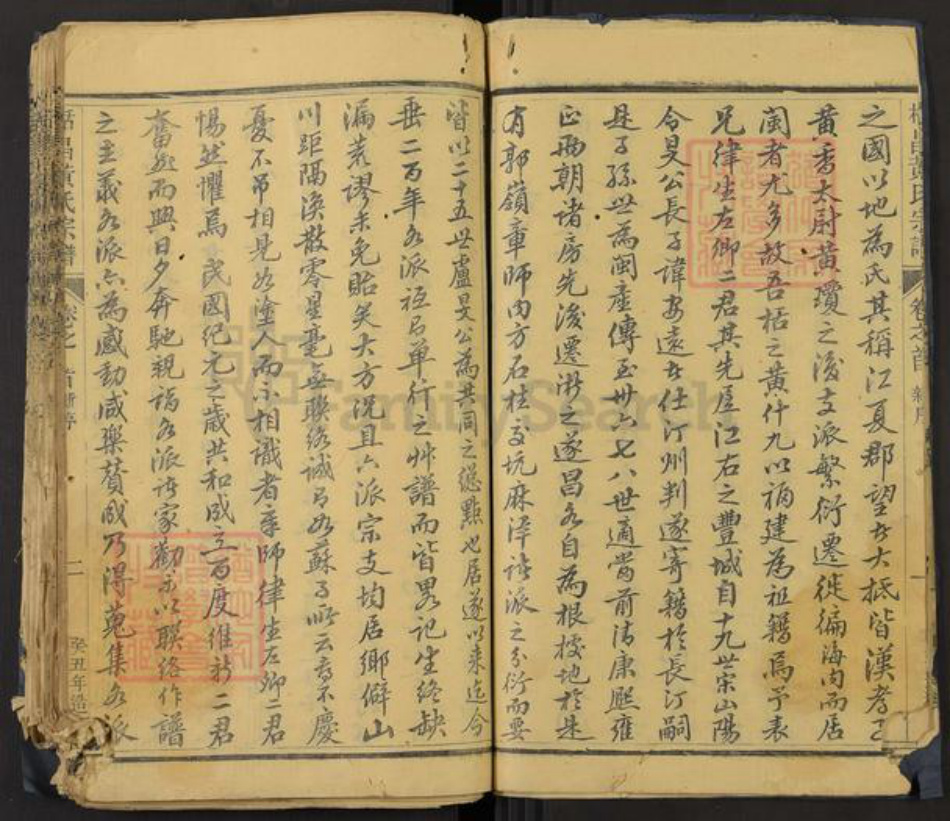 之國以地為氏其稱江夏郡望者大抵皆漢孝子
黃香太尉黃瓊之後支派繁衍遷徙徧海內而居
閩者尤多故吾括之黃什九以福建為祖籍焉予表
兄律生左卿二君其先居江右之豐城自十九世宗山陽
令旻公長子諱安遠者仕汀州判遂寄籍於長汀嗣
是子孫世為閩產傳至卅六七八世適當前清康熙雍
正兩朝諸房先後遷浙之遂昌各自為根據地於是
有郭嶺章師內方石柱交坑麻洋諸派之分衍而要
皆以二十五世盧旻公為共同之總點也居遂以來迄今
垂二百年各派祇有單行之艸譜而皆畧記生終缺
漏荒謬未免貽笑大方況且六派宗支均居鄉僻山
川距隔渙散零星毫無聯絡誠有如蘇子所云喜不慶
憂不弔相見如塗人而不相識者章師律生左卿二君
惕然懼焉 民國紀元之歲共和成立百度維新二君
奮然而興日夕奔馳親詣各派諸家勸示以聯絡作譜
之主義各派亦為感動咸樂贊成乃得蒐集各派
括昌黃氏宗譜 卷之首 新序 二 癸丑年造
FamilySearch